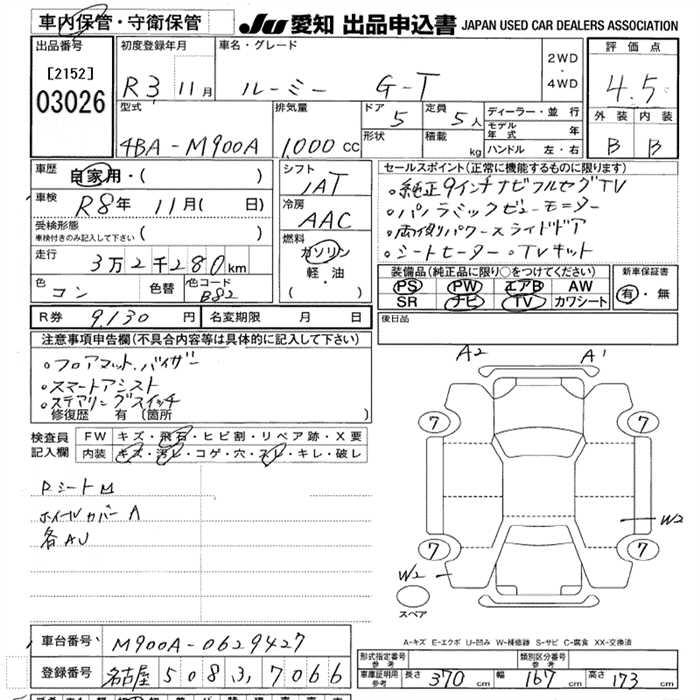 車内保管・守衛保管 JU 愛知 出品申込書 JAPAN USED CAR DEALERS ASSOCIATION
出品番号
[2152]
03026
初度登録年月
R3 11月
車名・グレード
ルーミー G-T
2WD
・
4WD
評価点
4.5
外装 内装
B B
型式
4BA-M900A
排気量
1000 CC
ドア
5
定員
5人
形状
積載
kg
ディーラー・並行
モデル年式 年
ハンドル 左・右
車歴
自家用・( )
車検
R8年 11月( 日)
受検形態
車検付きのみ記入して下さい ( )
走行
3万2千280km
色
コン
色替
色コード
B82
シフト
IAT
冷房
AAC
燃料
ガソリン
軽・油
( )
セールスポイント(正常に機能するものに限ります)
。純正9インチナビフルセグTV
。パノラミックビューモニター
。両側パワースライドドア
。シートヒーター。TVキット
装備品(純正品に限り○をつけてください)
PS PW エアB AW
SR ナビ TV カワシート
新車保証書
有・無
R券 9,130 円 名変期限 月 日
後日品
注意事項申告欄(不具合内容等は具体的に記入して下さい)
。フロアマット、バイザー
。スマートアシスト
。ステアリングスイッチ
修復歴 有 (箇所 )
検査員記入欄
FW キズ・飛石・ヒビ割・リペア跡・X要
内装 キズ・汚レ・コゲ・穴・スレ・キレ・破レ
Pシート M
ホイールカバー A
各AU
A2 A1
7 7
W2
7 7
W2
スペア
A-キズ E-エクボ U-凹み W-補修跡 S-サビ C-腐食 XX-交換済
車台番号 M900A-0629427
登録番号 名古屋 508 む 7066
形式指定番号 参考
類別区分番号 参考
車庫証明用 参考 長さ 370 cm 幅 167 cm 高さ 173 cm